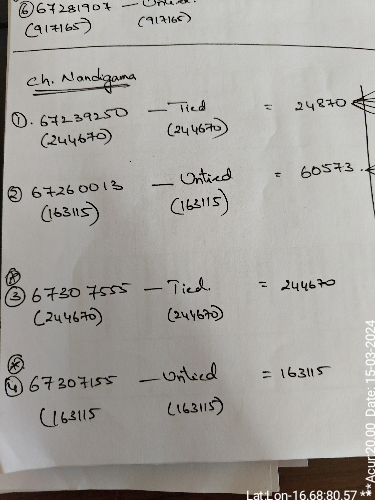 ⑥ 67281907 — Untied.
(917165) (917165)
Ch. Nandigama
①. 67239250 — Tied = 24870
(244670) (244670)
② 67260013 — Untied = 60573
(163115) (163115)
③ 67307555 — Tied. = 244670
(244670) (244670)
④ 67307155 — Untied = 163115
(163115 (163115)
Lat Lon-16.68:80.57 *** Acur:20.00 Date: 15-03-2024